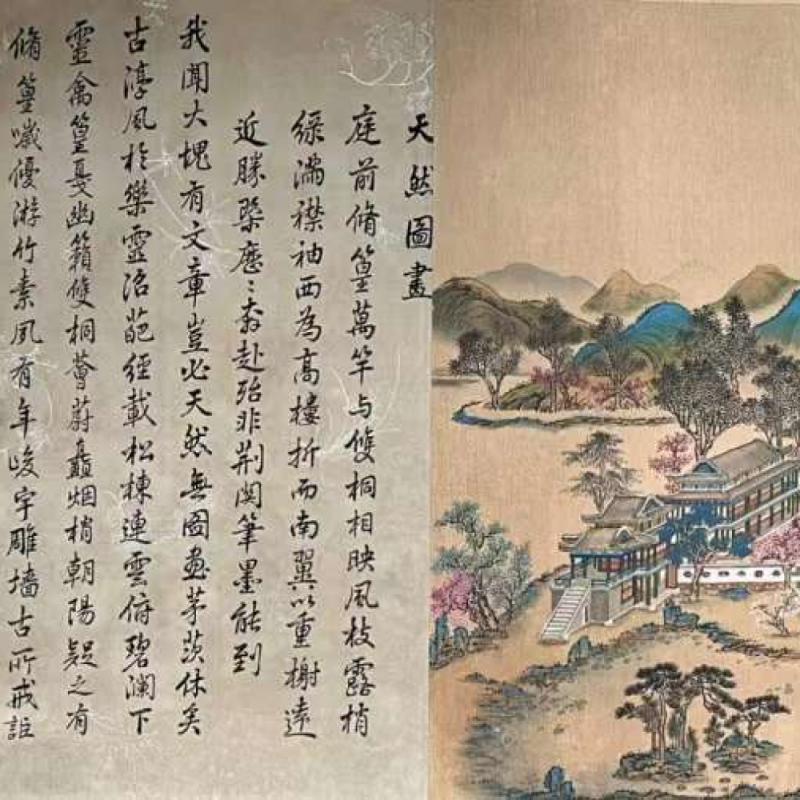 天然圖畫
庭前脩篁萬竿与雙桐相映風枝露梢
綠滿襟袖西為高樓折而南翼以重榭遠
近勝槩歷〻奔赴殆非荊関筆墨能到
我聞大塊有文章豈必天然無圖畫茅茨休矣
古淳風於樂靈沼葩經載松棟連雲俯碧瀾下
靈禽篁戛幽籟雙桐薈蔚矗烟梢朝陽疑之有
脩篁噦優游竹素夙有年峻宇雕墻古所戒詎